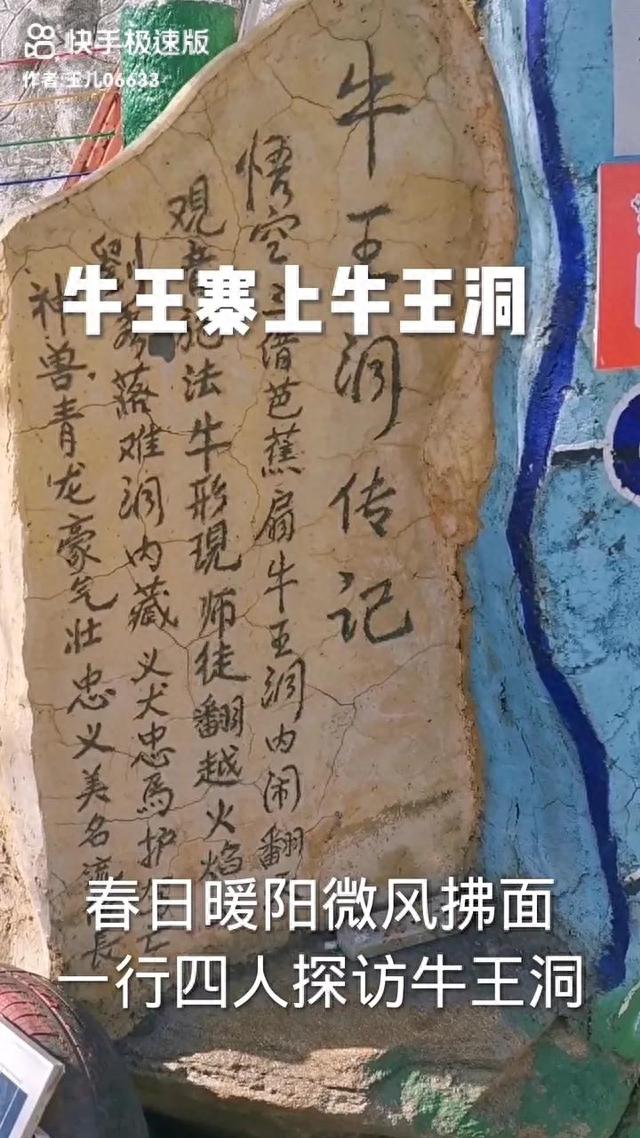 快手极速版
作者:玉儿06633
牛王洞传记
悟空三借芭蕉扇牛王洞内闹翻
观音施法牛形現师徒翻越火焰
劉秀落难洞内藏义犬忠馬护
神兽青龙豪气壮忠义美名流長
牛王寨上牛王洞
春日暖阳微风拂面
一行四人探访牛王洞